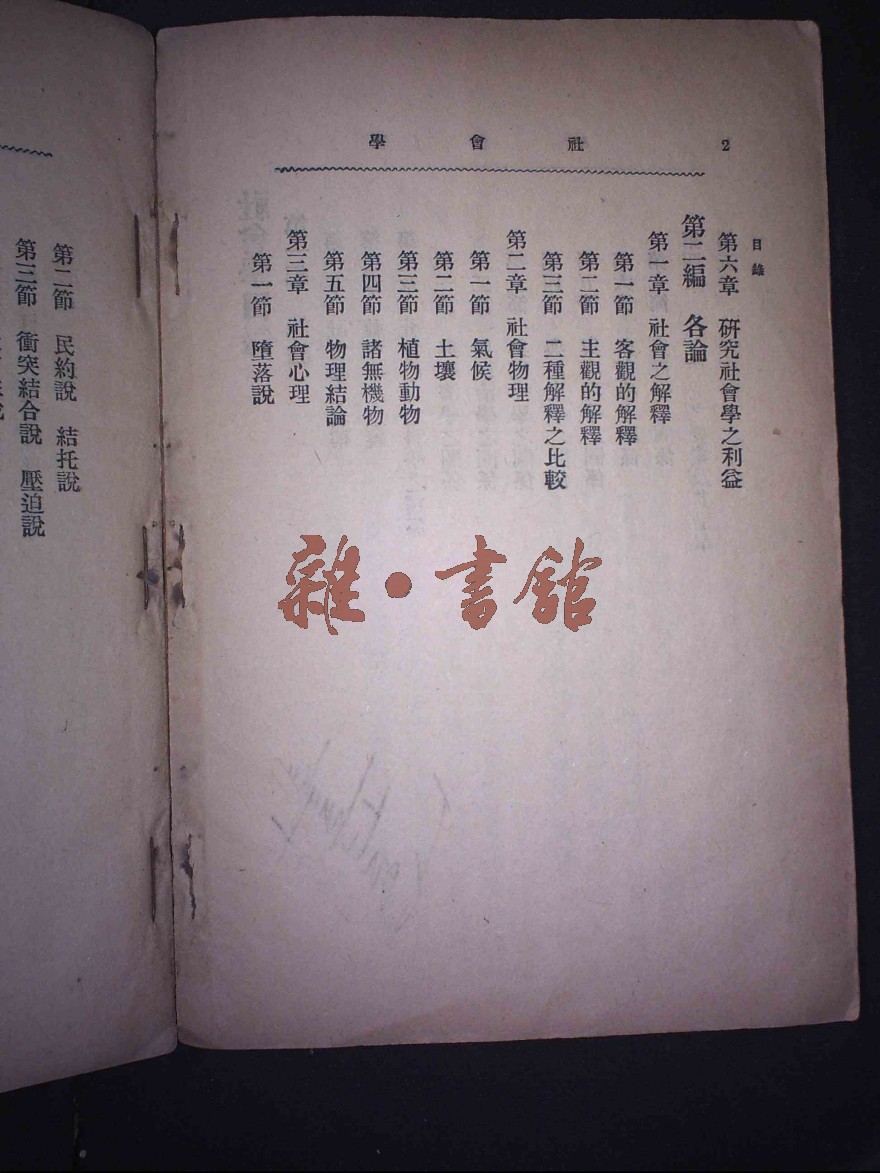 2 社會學
目錄
第六章 研究社會學之利益
第二編 各論
第一章 社會之解釋
第一節 客觀的解釋
第二節 主觀的解釋
第三節 二種解釋之比較
第二章 社會物理
第一節 氣候
第二節 土壤
第三節 植物動物
第四節 諸無機物
第五節 物理結論
第三章 社會心理
第一節 墮落說
第二節 民約說 結托說
第三節 衝突結合說 壓迫說
雜·書館